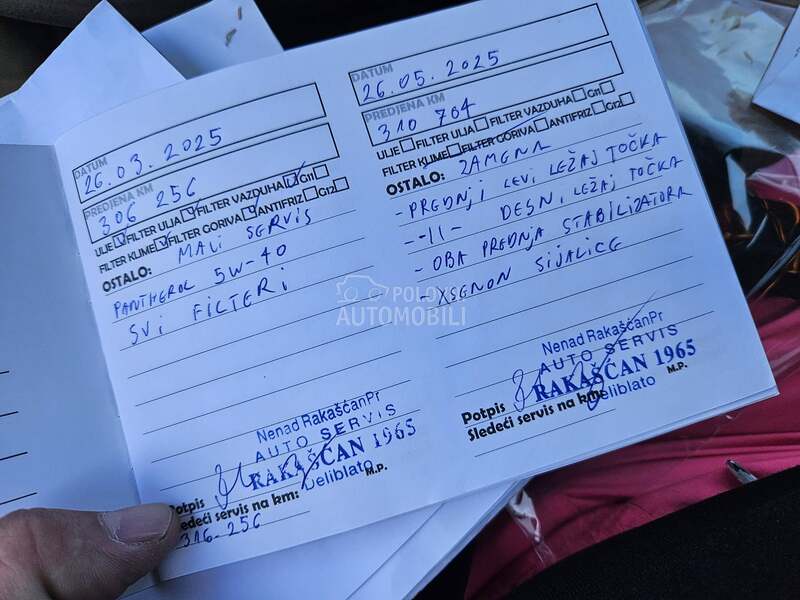 DATUM
26.03.2025
PREDJENA KM
306 256
ULJE FILTER ULJA FILTER VAZDUHA G11
FILTER KLIME FILTER GORIVA ANTIFRIZ G12
OSTALO: MALI SERVIS
PANTHEROL 5W-40
SVI FILTERI
Nenad RakaščanPr
AUTO SERVIS
RAKAŠČAN 1965
Deliblato
M.P.
Potpis
Sledeći servis na km:
316-256
DATUM
26.05.2025
PREDJENA KM
310 704
ULJE FILTER ULJA FILTER VAZDUHA G11
FILTER KLIME FILTER GORIVA ANTIFRIZ G12
OSTALO: ZAMENA
- PREDNJI LEVI LEŽAJ TOČKA
- -II- DESNI LEŽAJ TOČKA
- OBA PREDNJA STABILIZATORA
- XSENON SIJALICE
Nenad RakaščanPr
AUTO SERVIS
RAKAŠČAN 1965
Deliblato
M.P.
Potpis
Sledeći servis na km:
POLOVNI
AUTOMOBILI